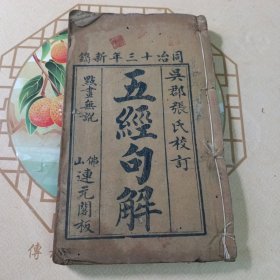 同治十三年新鐫
吳郡張氏校訂
五經句解
點畫無訛
佛山連元閣板
傳